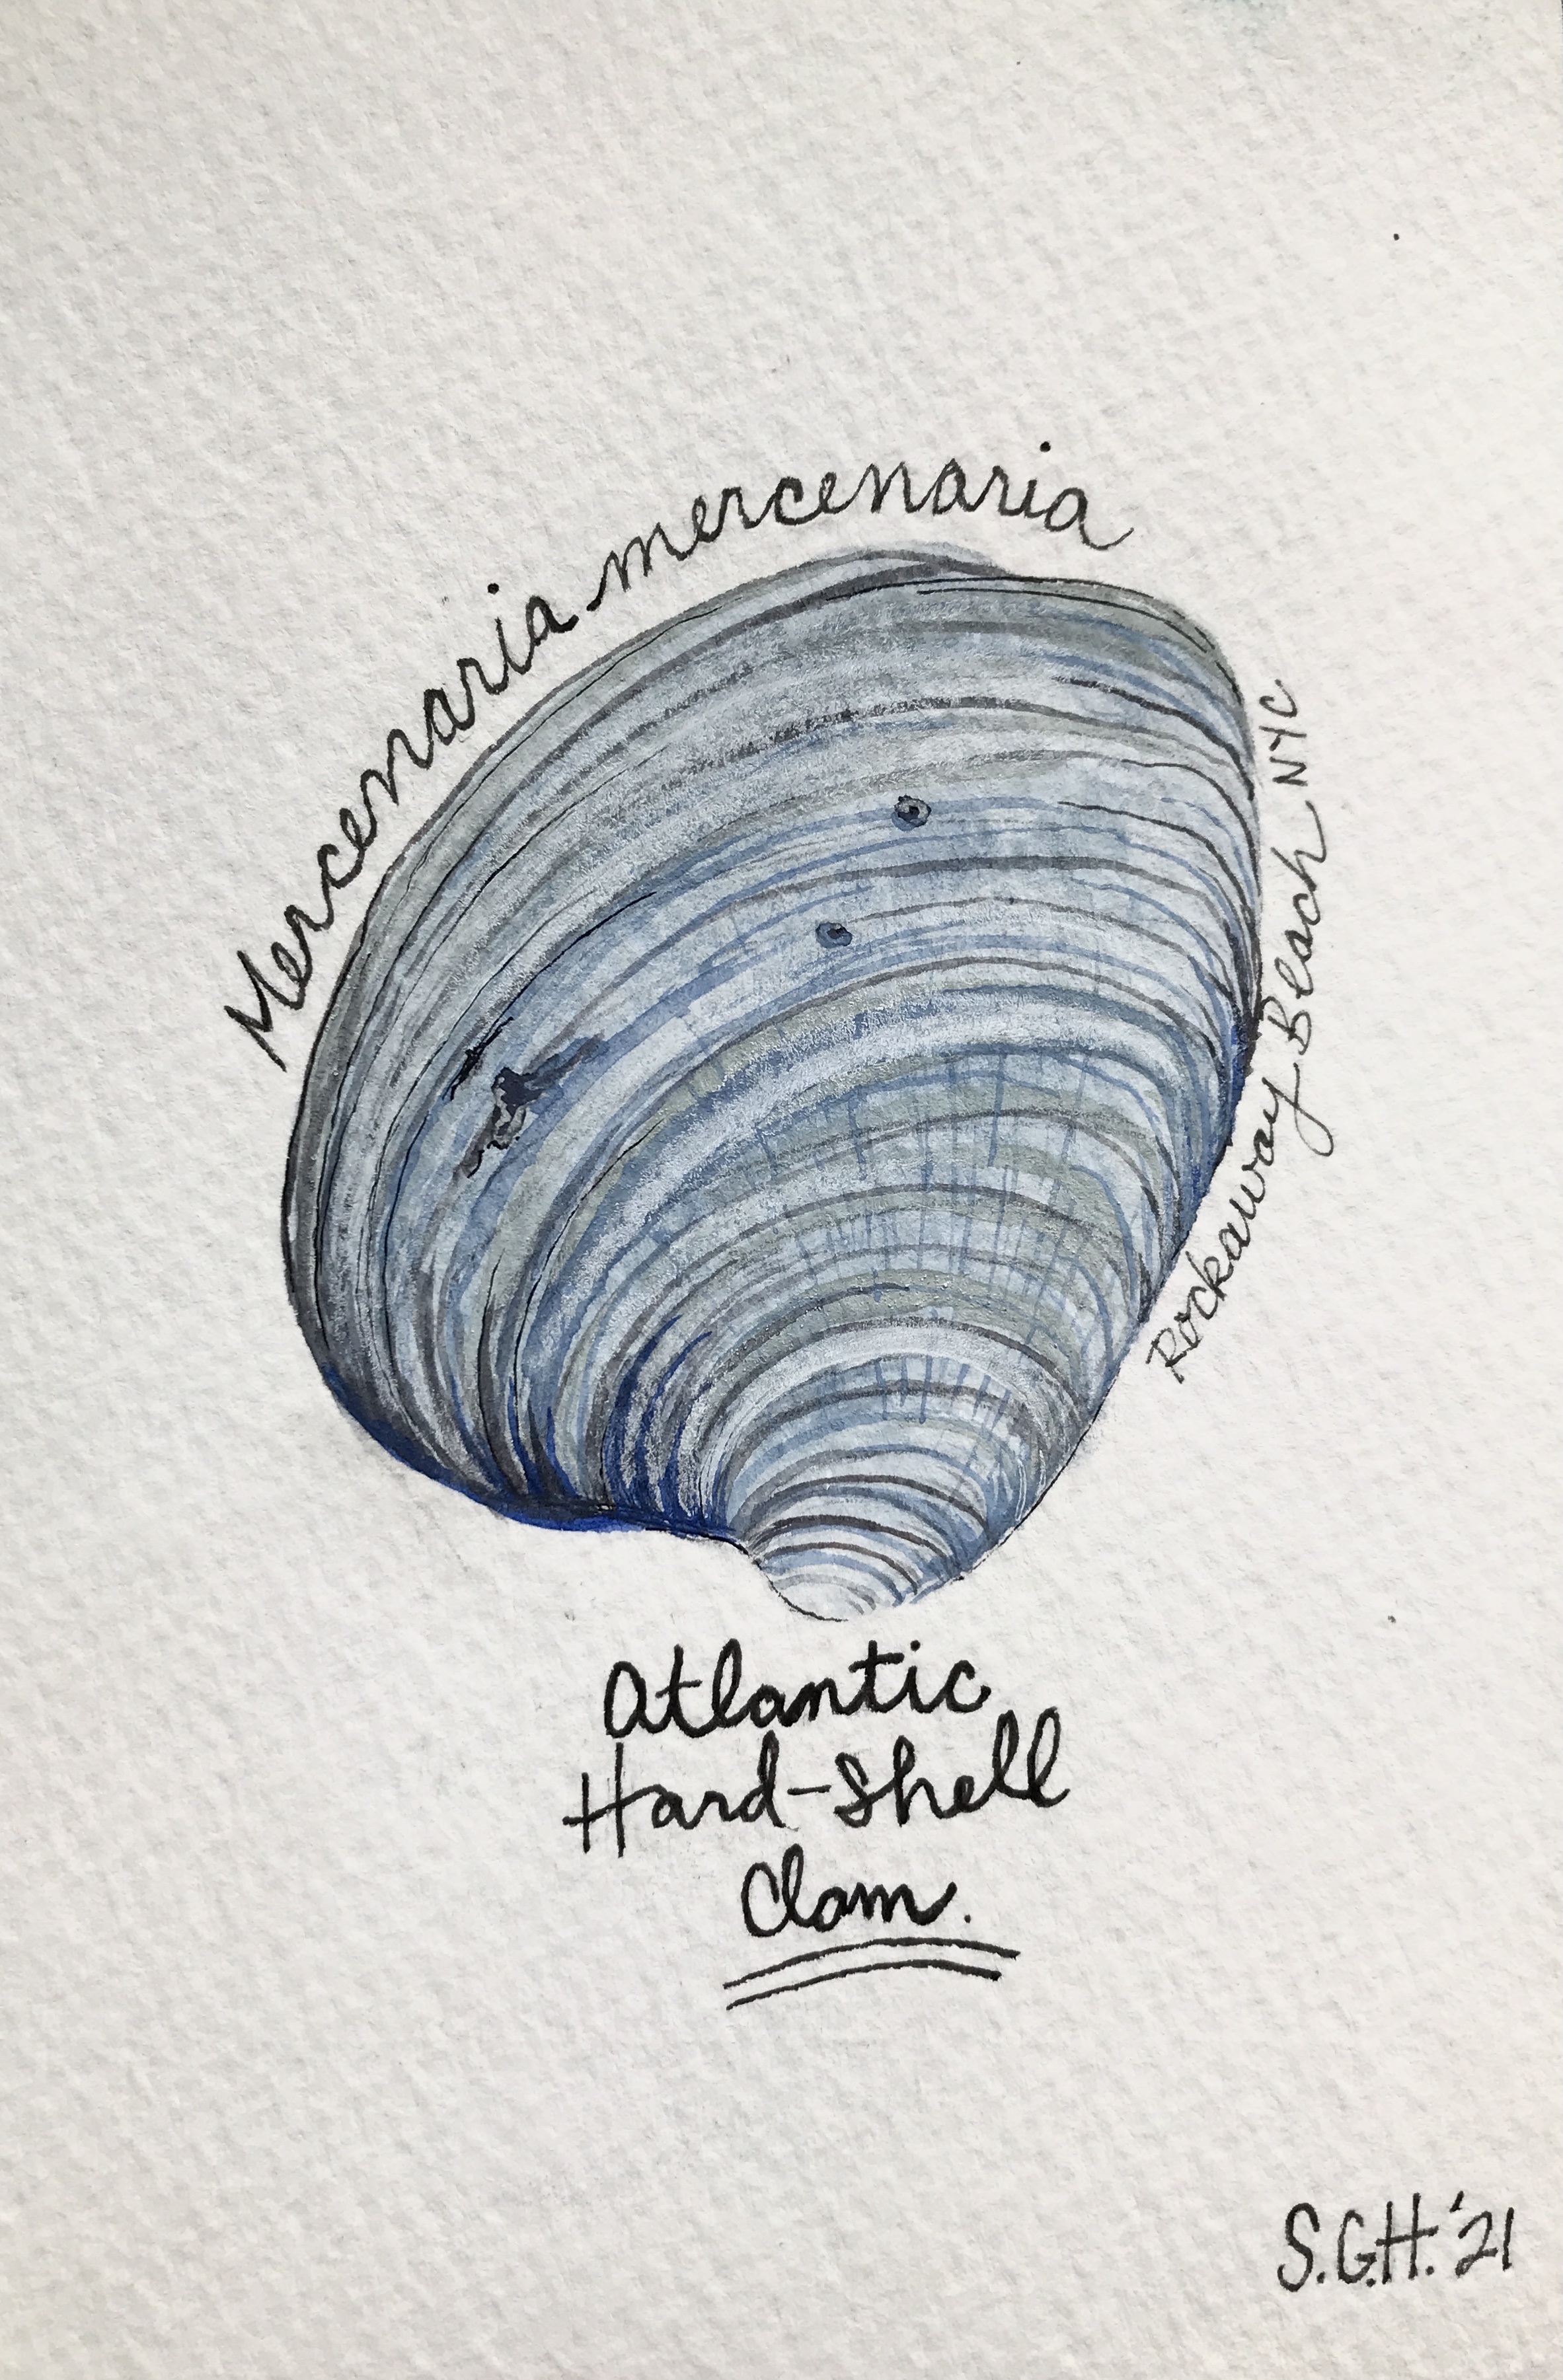 Mercenaria mercenaria
Rockaway Beach NYC
Atlantic
Hard-Shell
Clam.
S.G.H. '21